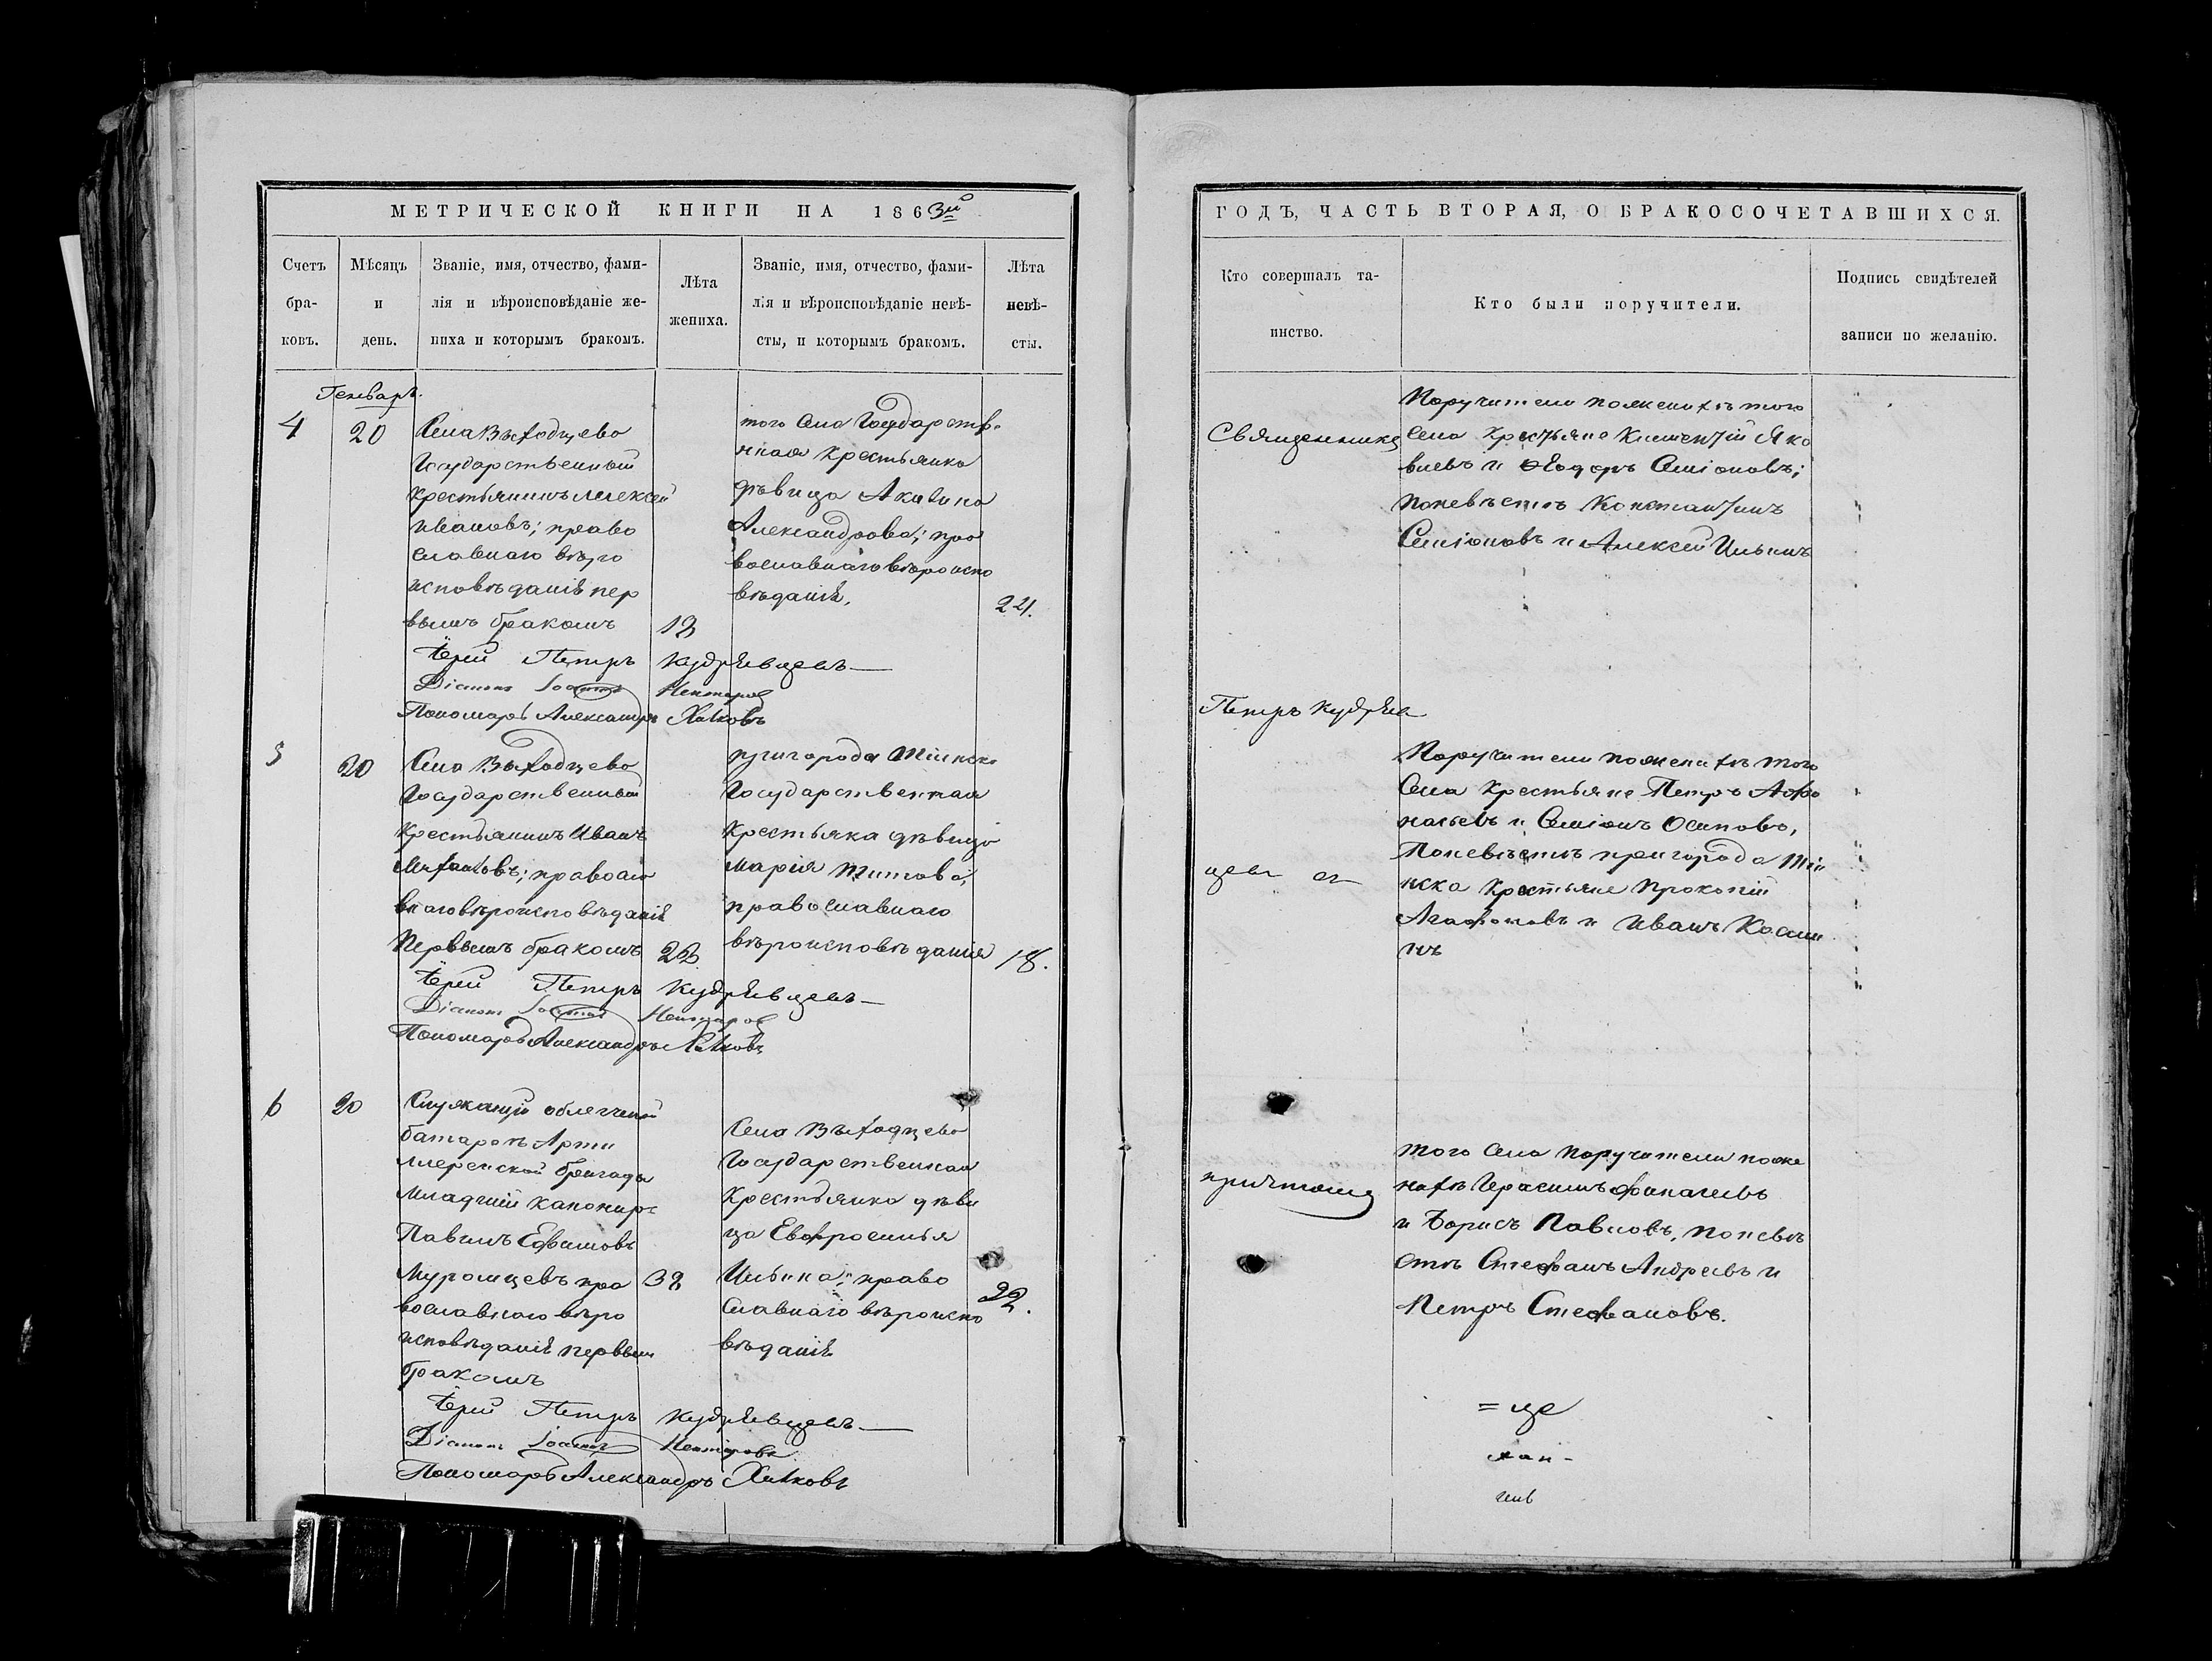 МЕТРИЧЕСКОЙ КНИГИ НА 1863й
Счетъ бра-ковъ.
Мѣсяцъ и день.
Званіе, имя, отчество, фами-
лія и вѣроисповѣданіе же-
ниха и которымъ бракомъ.
Лѣта
жениха.
Званіе, имя, отчество, фами-
лія и вѣроисповѣданіе невѣ-
сты, и которымъ бракомъ.
Лѣта
невѣ-
сты.
Генварь.
4
20
Села Выходцево
Государственный
крестьянинъ Алексей
Ивановъ; право
славнаго вѣро
исповѣданія пер
вымъ бракомъ
18
того села Государств.
нная крестьянка
дѣвица Акилина
Александрова; пра
вославнаго вѣроиспо
вѣданія.
21.
Іерей Петръ Кудрявцевъ
Діаконъ Іоаннъ Нектаровъ
Пономарь Александръ
5
20
Села Выходцево
Государственный
Крестьянинъ Иванъ
православ
наго вѣроисповѣданія
Первымъ бракомъ
22
пригорода Тіинска
Государственная
Крестьянка дѣвица
Марія Титова;
православнаго
вѣроисповѣданія
18.
Іерей Петръ Кудрявцевъ
Діаконъ Іоаннъ Нектаровъ
Пономарь Александръ
6
20
Служащій облегченой
батареѣ Арти
ллерійской бригады
Младчій канониръ
Павилъ Ефимовъ
Муромцевъ пра
вославнаго вѣро
исповѣданія первымъ
бракомъ
32
Села Выходцево
Государственная
Крестьянка дѣви
ца Евфросинья
Ильина; право
славнаго вѣроиспо
вѣданія
22.
Іерей Петръ Кудрявцевъ
Діаконъ Іоаннъ Нектаровъ
Пономарь Александръ
ГОДЪ, ЧАСТЬ ВТОРАЯ, О БРАКОСОЧЕТАВШИХСЯ.
Кто совершалъ та-
инство.
Кто были поручители.
Подпись свидѣтелей
записи по желанію.
Священникъ
Поручители по женихѣ того
села Крестьяне Яко
влевъ и Ѳедоръ Симіоновъ;
по невѣстѣ Константинъ
Симіоновъ и Алексей Ильинъ
Петръ Кудряв
цевъ съ
Поручители по женихѣ того
Села Крестьяне Петръ Афо
насьевъ и Симіонъ Осиповъ,
По невѣстѣ пригорода Тіи
нска Крестьяне Прокопій
Агафоновъ и Иванъ Косми
нъ
причтомъ
того Села поручители по же
нихѣ Герасимъ Афанасьевъ
и Борисъ Павловъ, по невѣ
стѣ Стефанъ Андреевъ и
Петръ Стефановъ.
= це